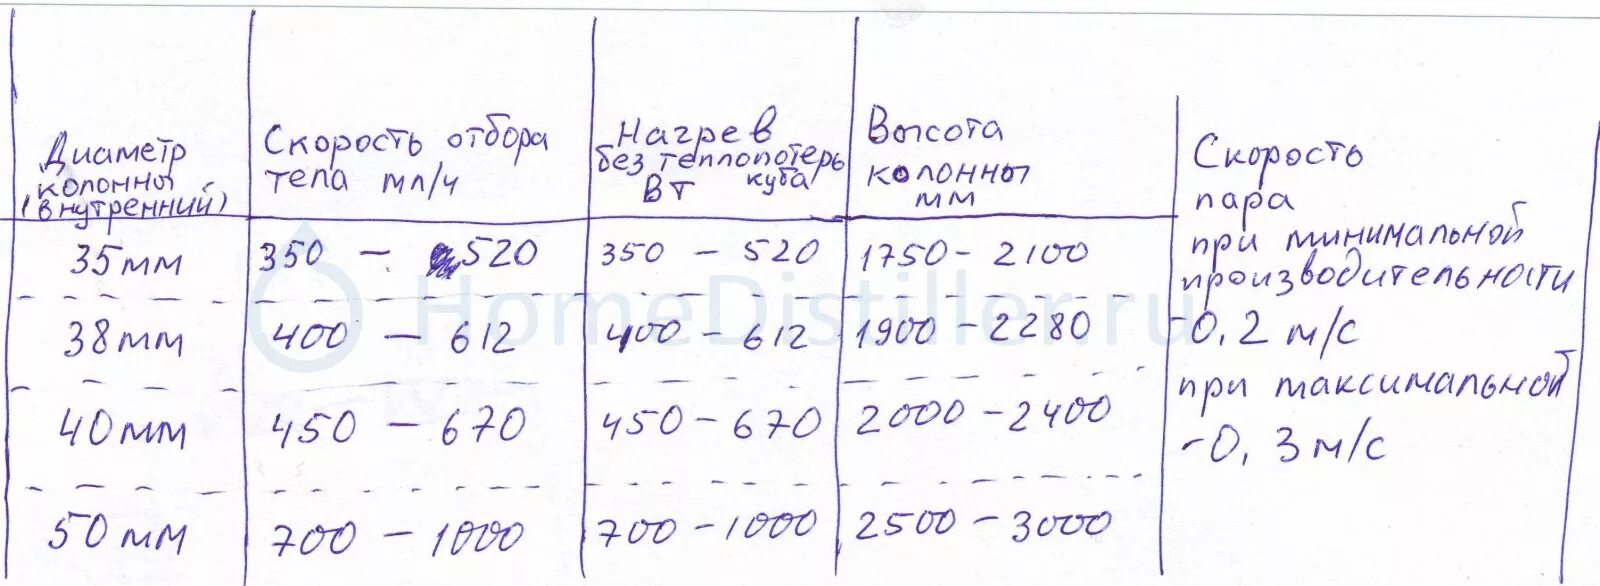 Диаметр
колонны
(внутренний)
Скорость отбора
тела мл/ч
Нагрев
без теплопотерь
Вт куба
Высота
колонны
мм
Скорость
пара
при минимальной
производительности
-0,2 м/с
при максимальной
-0,3 м/с
35мм 350 – 520 350 – 520 1750 – 2100
38мм 400 – 612 400 – 612 1900 – 2280
40мм 450 – 670 450 – 670 2000 – 2400
50мм 700 – 1000 700 – 1000 2500 – 3000
HomeDistiller.ru